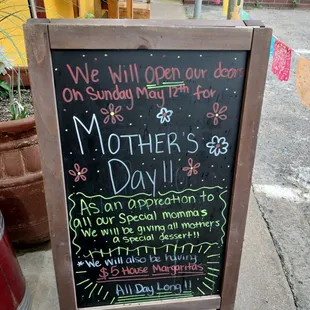 We Will Open our doors
On Sunday May 12th for
MOTHER'S
DAY!!
As an appreation to
all our Special momma's
We will be giving all mother's
a special dessert!!
*We will also be having
$5 House Margaritas
All Day Long!!